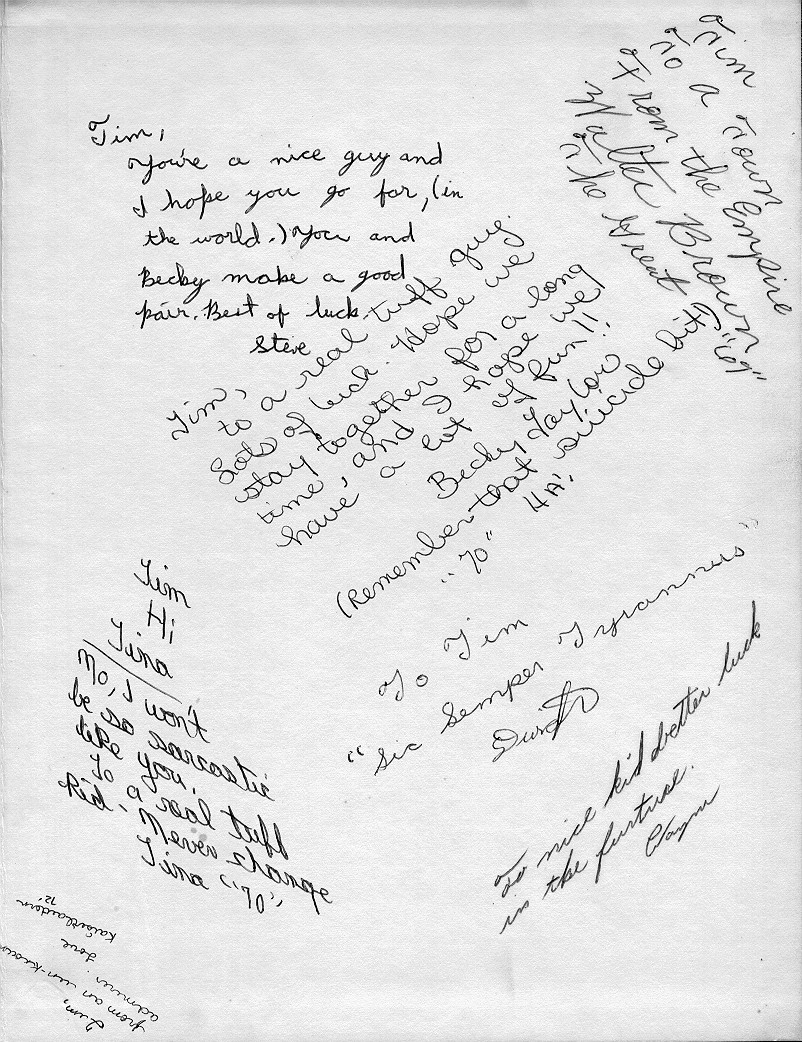 Tim,
You're a nice guy and
I hope you go far, (in
the world.) You and
Becky make a good
pair. Best of luck.
Steve
Tim
To a Town
From the Empire
Walter Brown
The Great
"69"
Tim,
to a real tuff guy.
Lots of luck. Hope we
stay together for a long
time, and I hope we
have a lot of fun!!
Becky Taylor
(Remember that suicide bit)
"70" HA!
Tim
Hi
Tina
No, I won't
be so sarcastic
like you.
To a real tuff
kid - Never change
Tina "70"
To Tim
"Sic Semper Tyrannus"
To nice kid better luck
in the furture.
Wayne
Tim,
from an un-known
admirer.
Kaiserslautern
72'